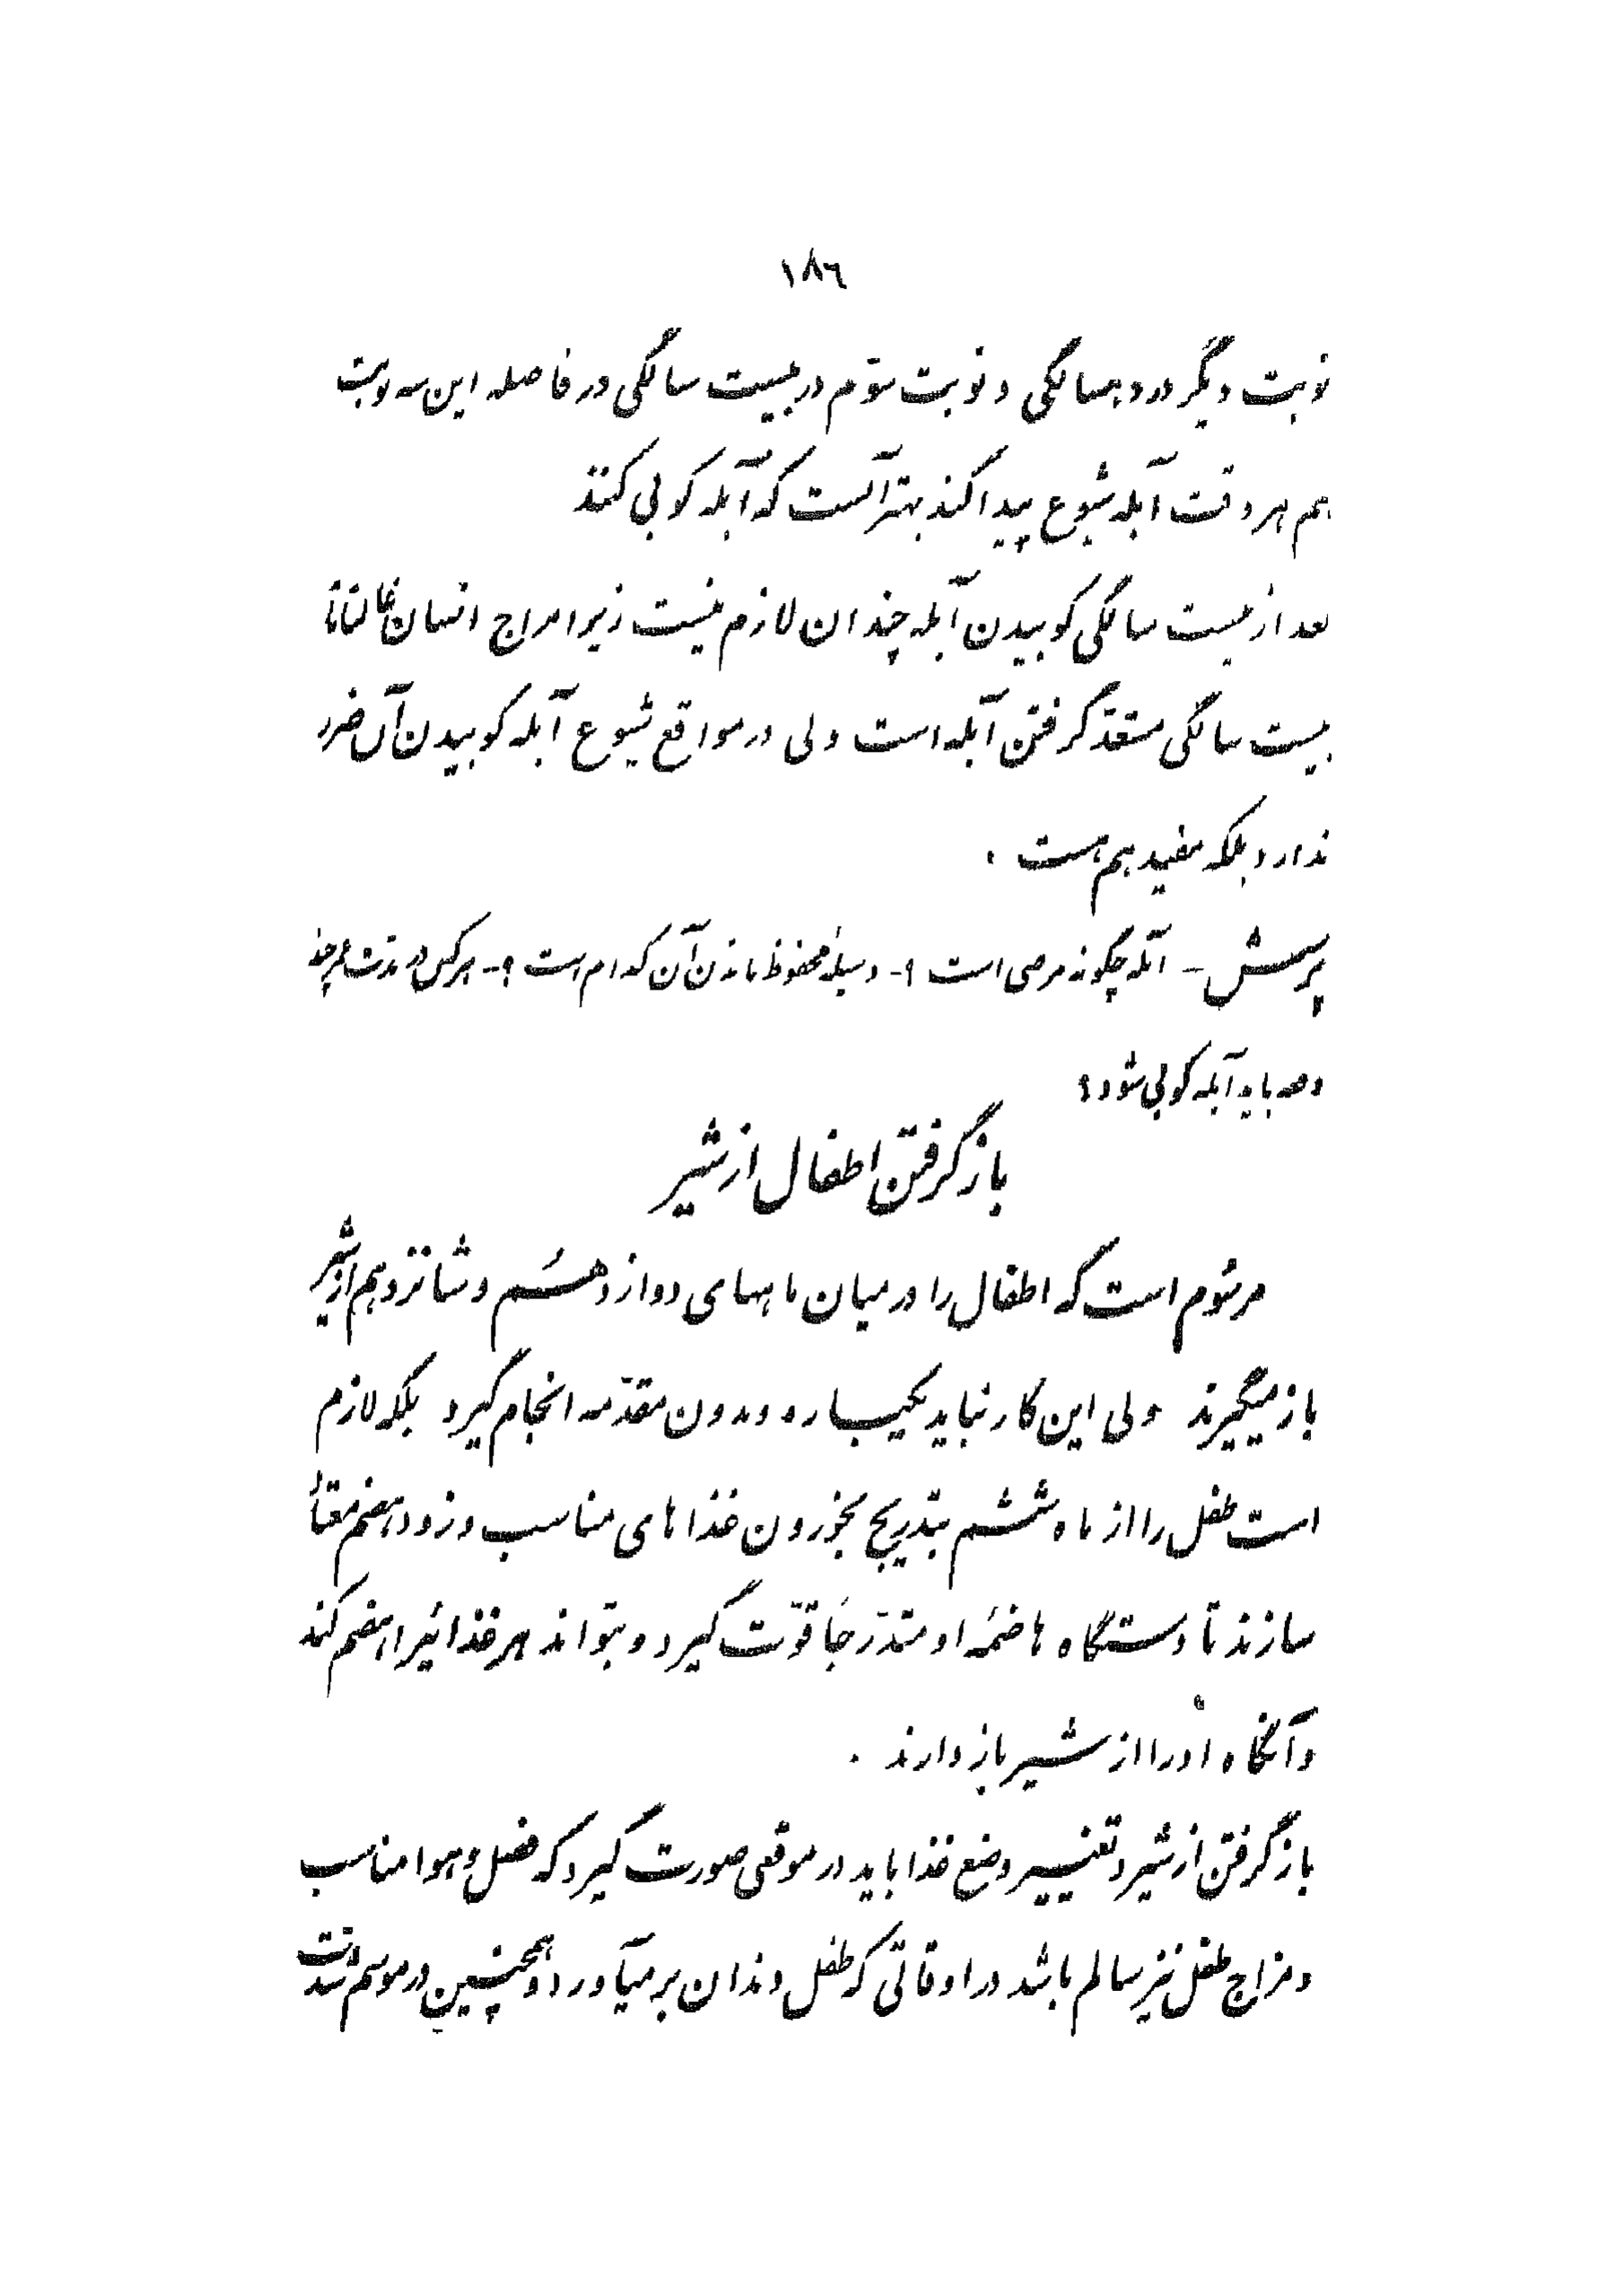 ١٨٦
نوبت دیگر در دهسالگی و نوبت سوّم در بیست سالگی در فاصله این سه نوبت
هم هر وقت آبله شیوع پیدا کند بهتر آنست که آبله کوبی کنند
بعد از بیست سالگی کوبیدن آبله چندان لازم نیست زیرا مزاج انسان غالباً تا
بیست سالگی مستعدّ گرفتن آبله است ولی در مواقع شیوع آبله کوبیدن آن ضرر
ندارد بلکه مفید هم هست .
پرسش - آبله چگونه مرضی است ؟ - وسیلهٔ محفوظ ماندن از آن کدام است ؟ - هر کس در مدّت عمر چند
دفعه باید آبله کوبی شود ؟
بازگرفتن اطفال از شیر
مرسُوم است که اطفال را در میان ماههای دوازدهُم و شانزدهم از شیر
باز میگیرند ولی این کار نباید یکباره و بدون مقدّمه انجام گیرد بلکه لازم
است طفل را از ماه ششم بتدریج بخوردن غذاهای مناسب و زود هضم معتاد
سازند تا دستگاه هاضمَه او متدرّجاً قوّت گیرد و بتواند هر غذائیرا هضم کند
و آنگاه او را از شیر باز دارند .
بازگرفتن از شیر و تغییر وضع غذا باید در موقعی صورت گیرد که فصل و هوا مناسب
و مزاج طفل نیز سالم باشد در اوقاتی که طفل دندان بر میآورد و همچنین در موسم شدّت